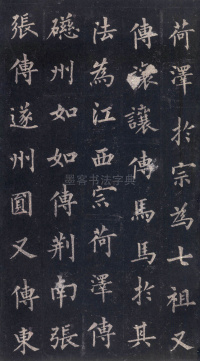 荷澤於宗為七祖又
傳讓讓傳馬馬於其
法為江西宗荷澤傳
磁州如如傳荊南張
張傳遂州圓又傳東
墨客书法字典